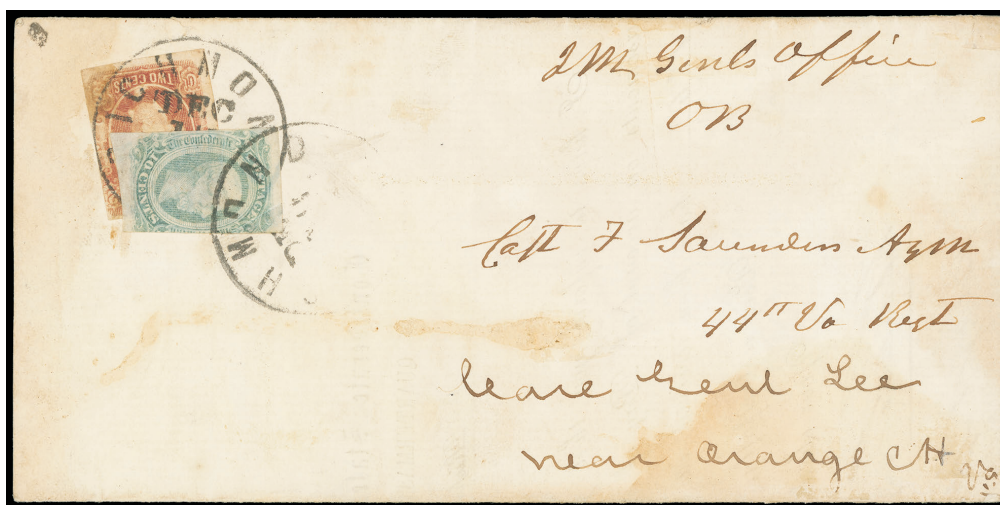 TWO CENTS
RICHMOND
DEC
The Confederate
TEN CENTS
RICHM
QM Genls Office
OB
Capt F Saunders AQM
44th Va Regt
Care Genl Lee
near Orange CH